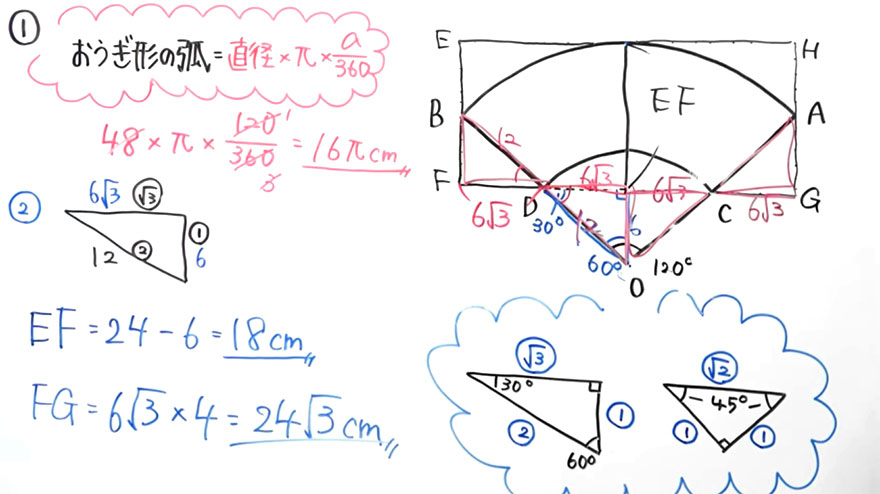 ①
おうぎ形の弧=直径×π×a/360
48×π×120/360=16πcm
1
3
②
6√3 √3
12 ② ①
6
EF=24-6=18cm
FG=6√3×4=24√3cm
E H
B EF A
12
F 6√3 6√3 G
6√3 D C 6√3
30° 12 6
60° 120°
O
√3 √2
30° 45°
② ① ① ①
60°